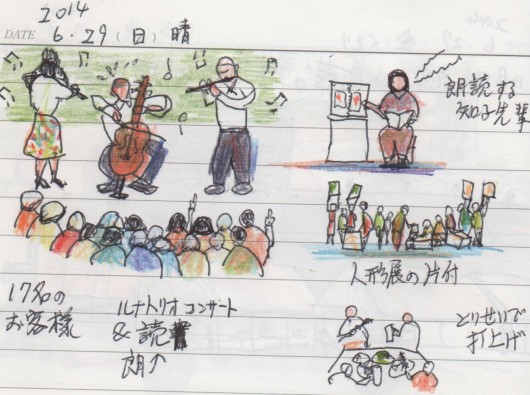 2014
DATE 6・29(日)晴
朗読する
知子先輩
人形展の片付
17名の
お客様
ルナトリオコンサート
& 読
朗↑
とりせいで
打上げ